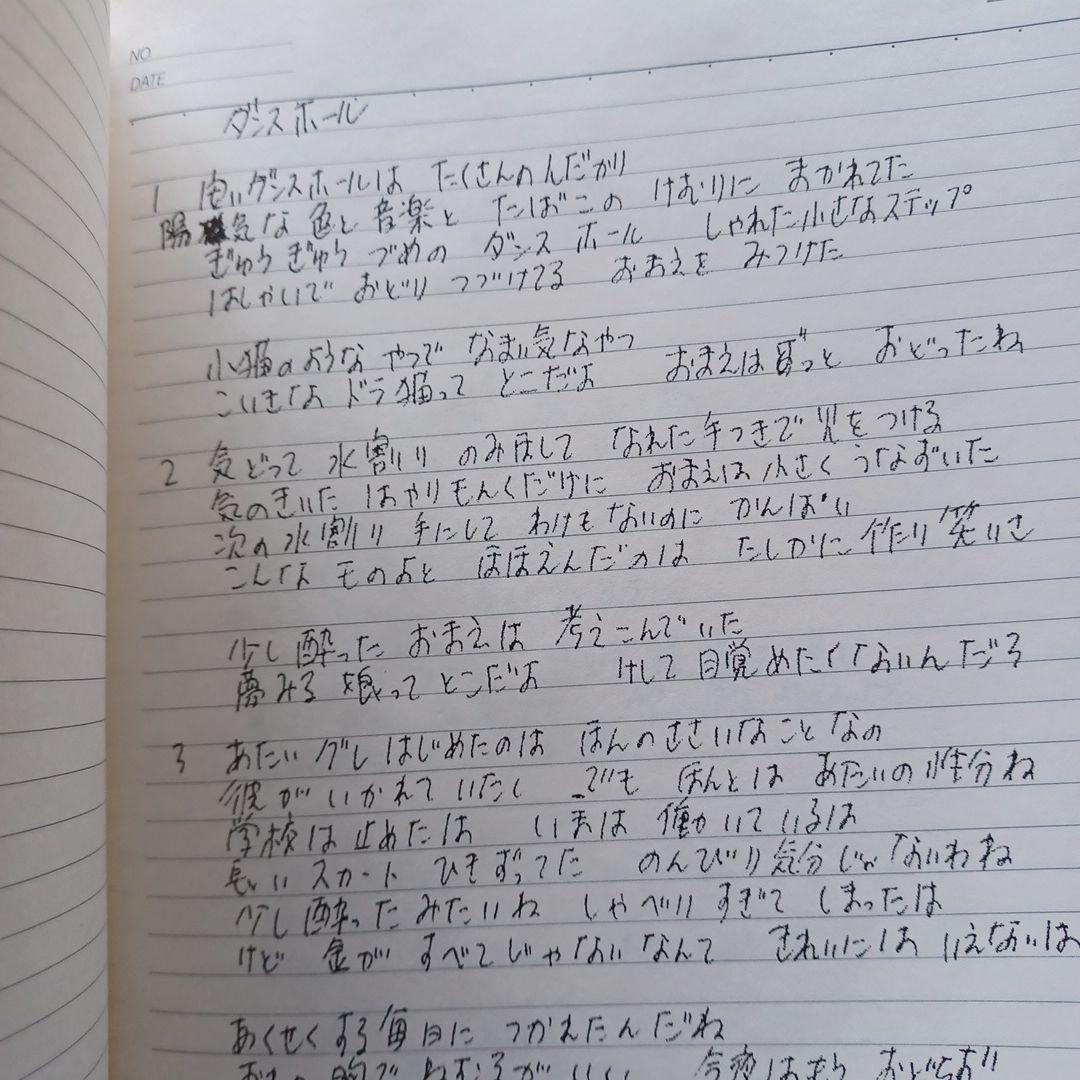 NO
DATE
ダンスホール
1 安いダンスホールは たくさんの人だかり
陽気な 色と 音楽と たばこの けむりに まかれてた
ぎゅうぎゅう づめの ダンスホール しゃれた小さなステップ
はしゃいで おどり つづけてる おまえを みつけた
小猫のような やつで なまい気なやつ
こいきな ドラ猫って とこだよ おまえはずっと おどったね
2 気どって 水割り のみほして なれた手つきで 火をつける
気のきいた はやりもんくだけに おまえは 小さく うなずいた
次の水割り 手にして わけもないのに かんぱい
こんな ものよと ほほえんだのは たしかに 作り 笑いさ
少し酔った おまえは 考えこんでいた
夢みる 娘って とこだよ けして 目覚めたくないんだろ
3 あたい グレはじめたのは ほんの ささいなことなの
彼が いかれていたし でも ほんとは あたいの 性分ね
学校は 止めたは いまは 働いているは
長いスカート ひきずってた のんびり 気分じゃないわね
少し酔ったみたいね しゃべり すぎて しまったは
けど 金が すべてじゃないなんて きれいには いえないは
あくせくする毎日に つかれたんだね
胸で ねむるが いい 今夜は